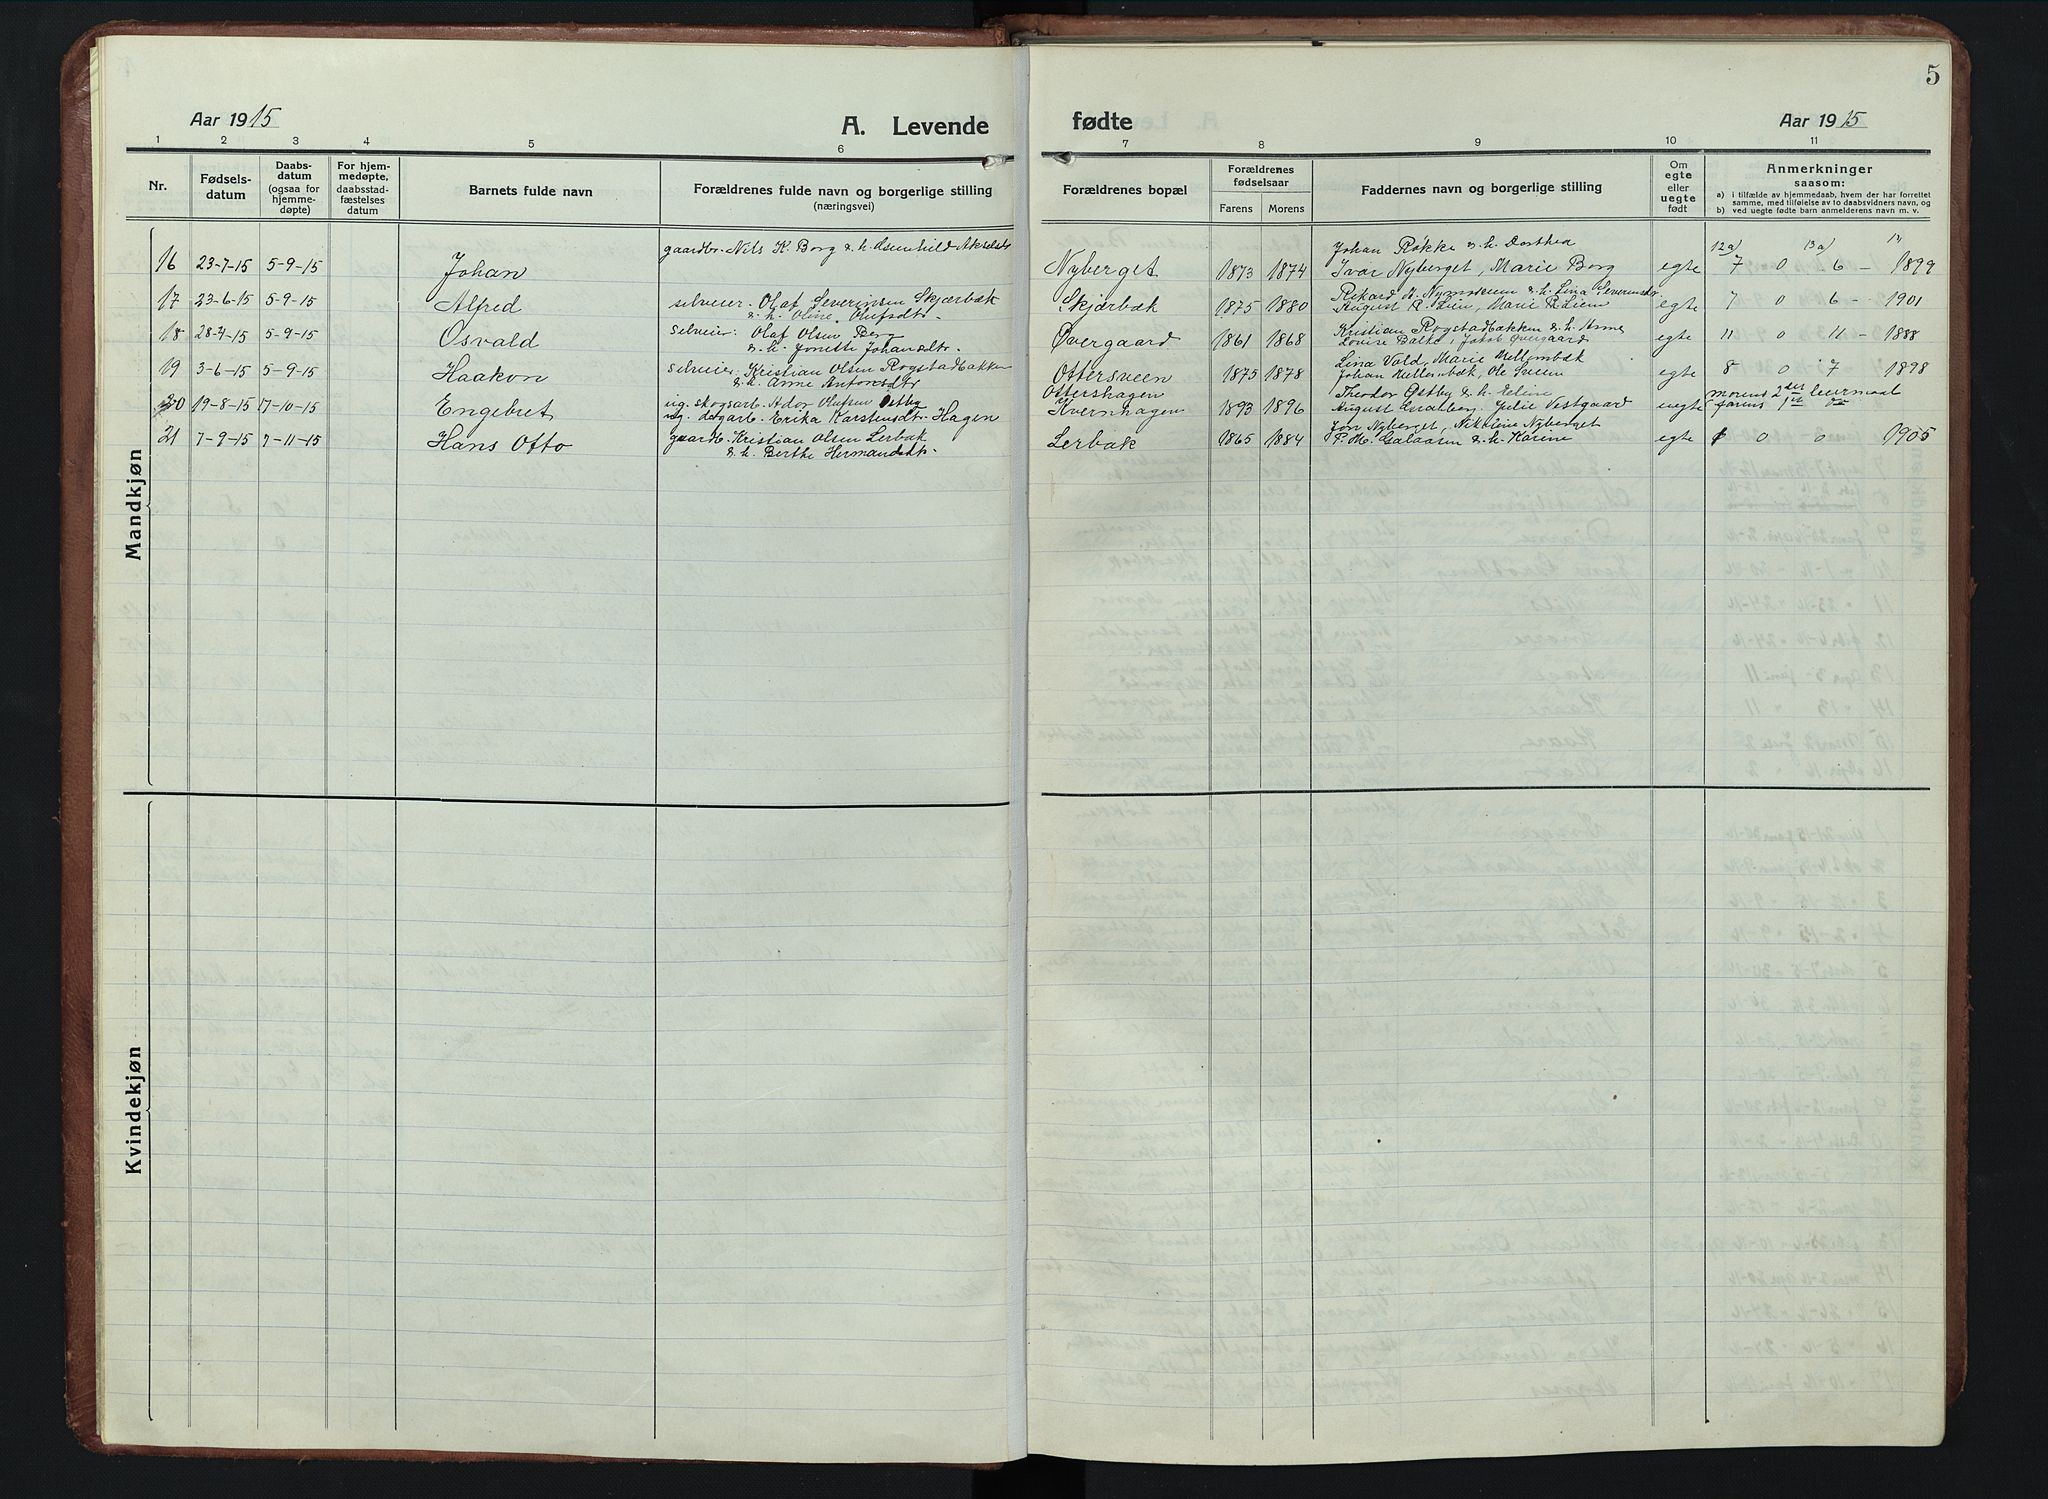 5
Aar 1915
A. Levende
fødte
Aar 1915
1 2 3 4 5 6 7 8 9 10 11
Nr.
Fødselsdatum
Daabsdatum (ogsaa for hjemmedøpte)
For hjemmedøpte, daabsstadfæstelses datum
Barnets fulde navn
Forældrenes fulde navn og borgerlige stilling (næringsvei)
Forældrenes bopæl
Forældrenes fødselsaar
Farens
Morens
Faddernes navn og borgerlige stilling
Om egte eller uegte født
Anmerkninger saasom:
a) i tilfælde av hjemmedaab, hvem der har forrettet samme, med tilføielse av to daabsvidners navn, og
b) ved uegte fødte barn anmelderens navn m. v.
Mandkjøn
gaardbr. Nils K. Borg & h. Johan Røkke & h. Dorthea 12a) 13a)
16 23-7-15 5-9-15 Johan Nyberget 1873 1874 Ivar Nyberget, Marie Borg egte 7 0 6 – 1899
17 23-6-15 5-9-15 Alfred selveier. Olaf Severinsen Skjærbæk Skjærbæk 1875 1880 egte 7 0 6 – 1901
& h. Oline Olufsdtr. August
18 28-4-15 5-9-15 Osvald selveier: Olaf Olsen Berg Øvergaard 1861 1868 Kristian Rogstadbakken & h. Anne egte 11 0 11 – 1888
& h. Jonette Johansdtr. Lovise Balke, Jakob Øvergaard
19 3-6-15 5-9-15 Haakon selveier Kristian Olsen Rogstadbakken Ottersveen 1875 1878 Lina Vold, Marie Mellembæk egte 8 0 7 1898
& h. Anne Antonsdtr Johan Mellembæk, Ole Sveen
20 19-8-15 17-10-15 Engebret ug. skogsarb. Ador Olufsen Østby Ottershagen 1893 1896 Theodor Østby & h. Eline uegte morens 2det leiermaal
Erika Karstensdtr. Hagen Kvernhagen August Lindberg, Julie Vestgaard farens 1st do
21 7-9-15 7-11-15 Hans Otto gaardb. Kristian Olsen Lerbak Lerbak 1865 1884 Jon Nyberget, Nikkline Nyberget egte 0 0 1905
& h. Berthe Hermansdtr. P. M. Galaasen & h. Karine
Kvindekjøn